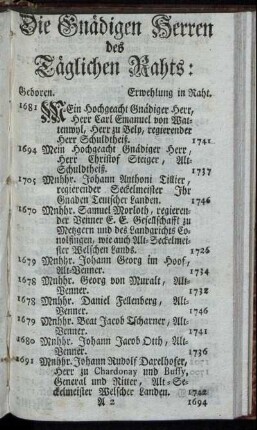 Die Gnädigen Herren
des
Täglichen Rahts:
Geboren. Erwehlung in Raht.
1681 MEin Hochgeacht Gnädiger Herr,
Herr Carl Emanuel von Wat-
tenwyl, Herr zu Belp, regierender
Herr Schuldtheiß. 1741
1694 Mein Hochgeacht Gnädiger Herr,
Herr Christof Steiger, Alt-
Schuldtheiß. 1737
1705 Mnhhr. Johann Anthoni Tillier,
regierender Seckelmeister Ihr
Gnaden Teutscher Landen. 1746
1670 Mnhhr. Samuel Morloth, regieren-
der Venner E. E. Gesellschafft zu
Metzgern und des Landgerichts Co-
nolfingen, wie auch Alt-Seckelmei-
ster Welschen Lands. 1726
1679 Mnhhr. Johann Georg im Hoof,
Alt-Venner. 1734
1678 Mnhhr. Georg von Muralt, Alt-
Venner. 1732
1678 Mnhhr. Daniel Fellenberg, Alt-
Venner. 1746
1679 Mnhhr. Beat Jacob Tscharner, Alt-
Venner. 1741
1680 Mnhhr. Johann Jacob Otth, Alt-
Venner. 1736
1691 Mnhhr. Johann Rudolf Daxelhofer,
Herr zu Chardonay und Bussy,
General und Ritter, Alt-Se-
ckelmeister Welscher Landen. 1742
A 2 1694